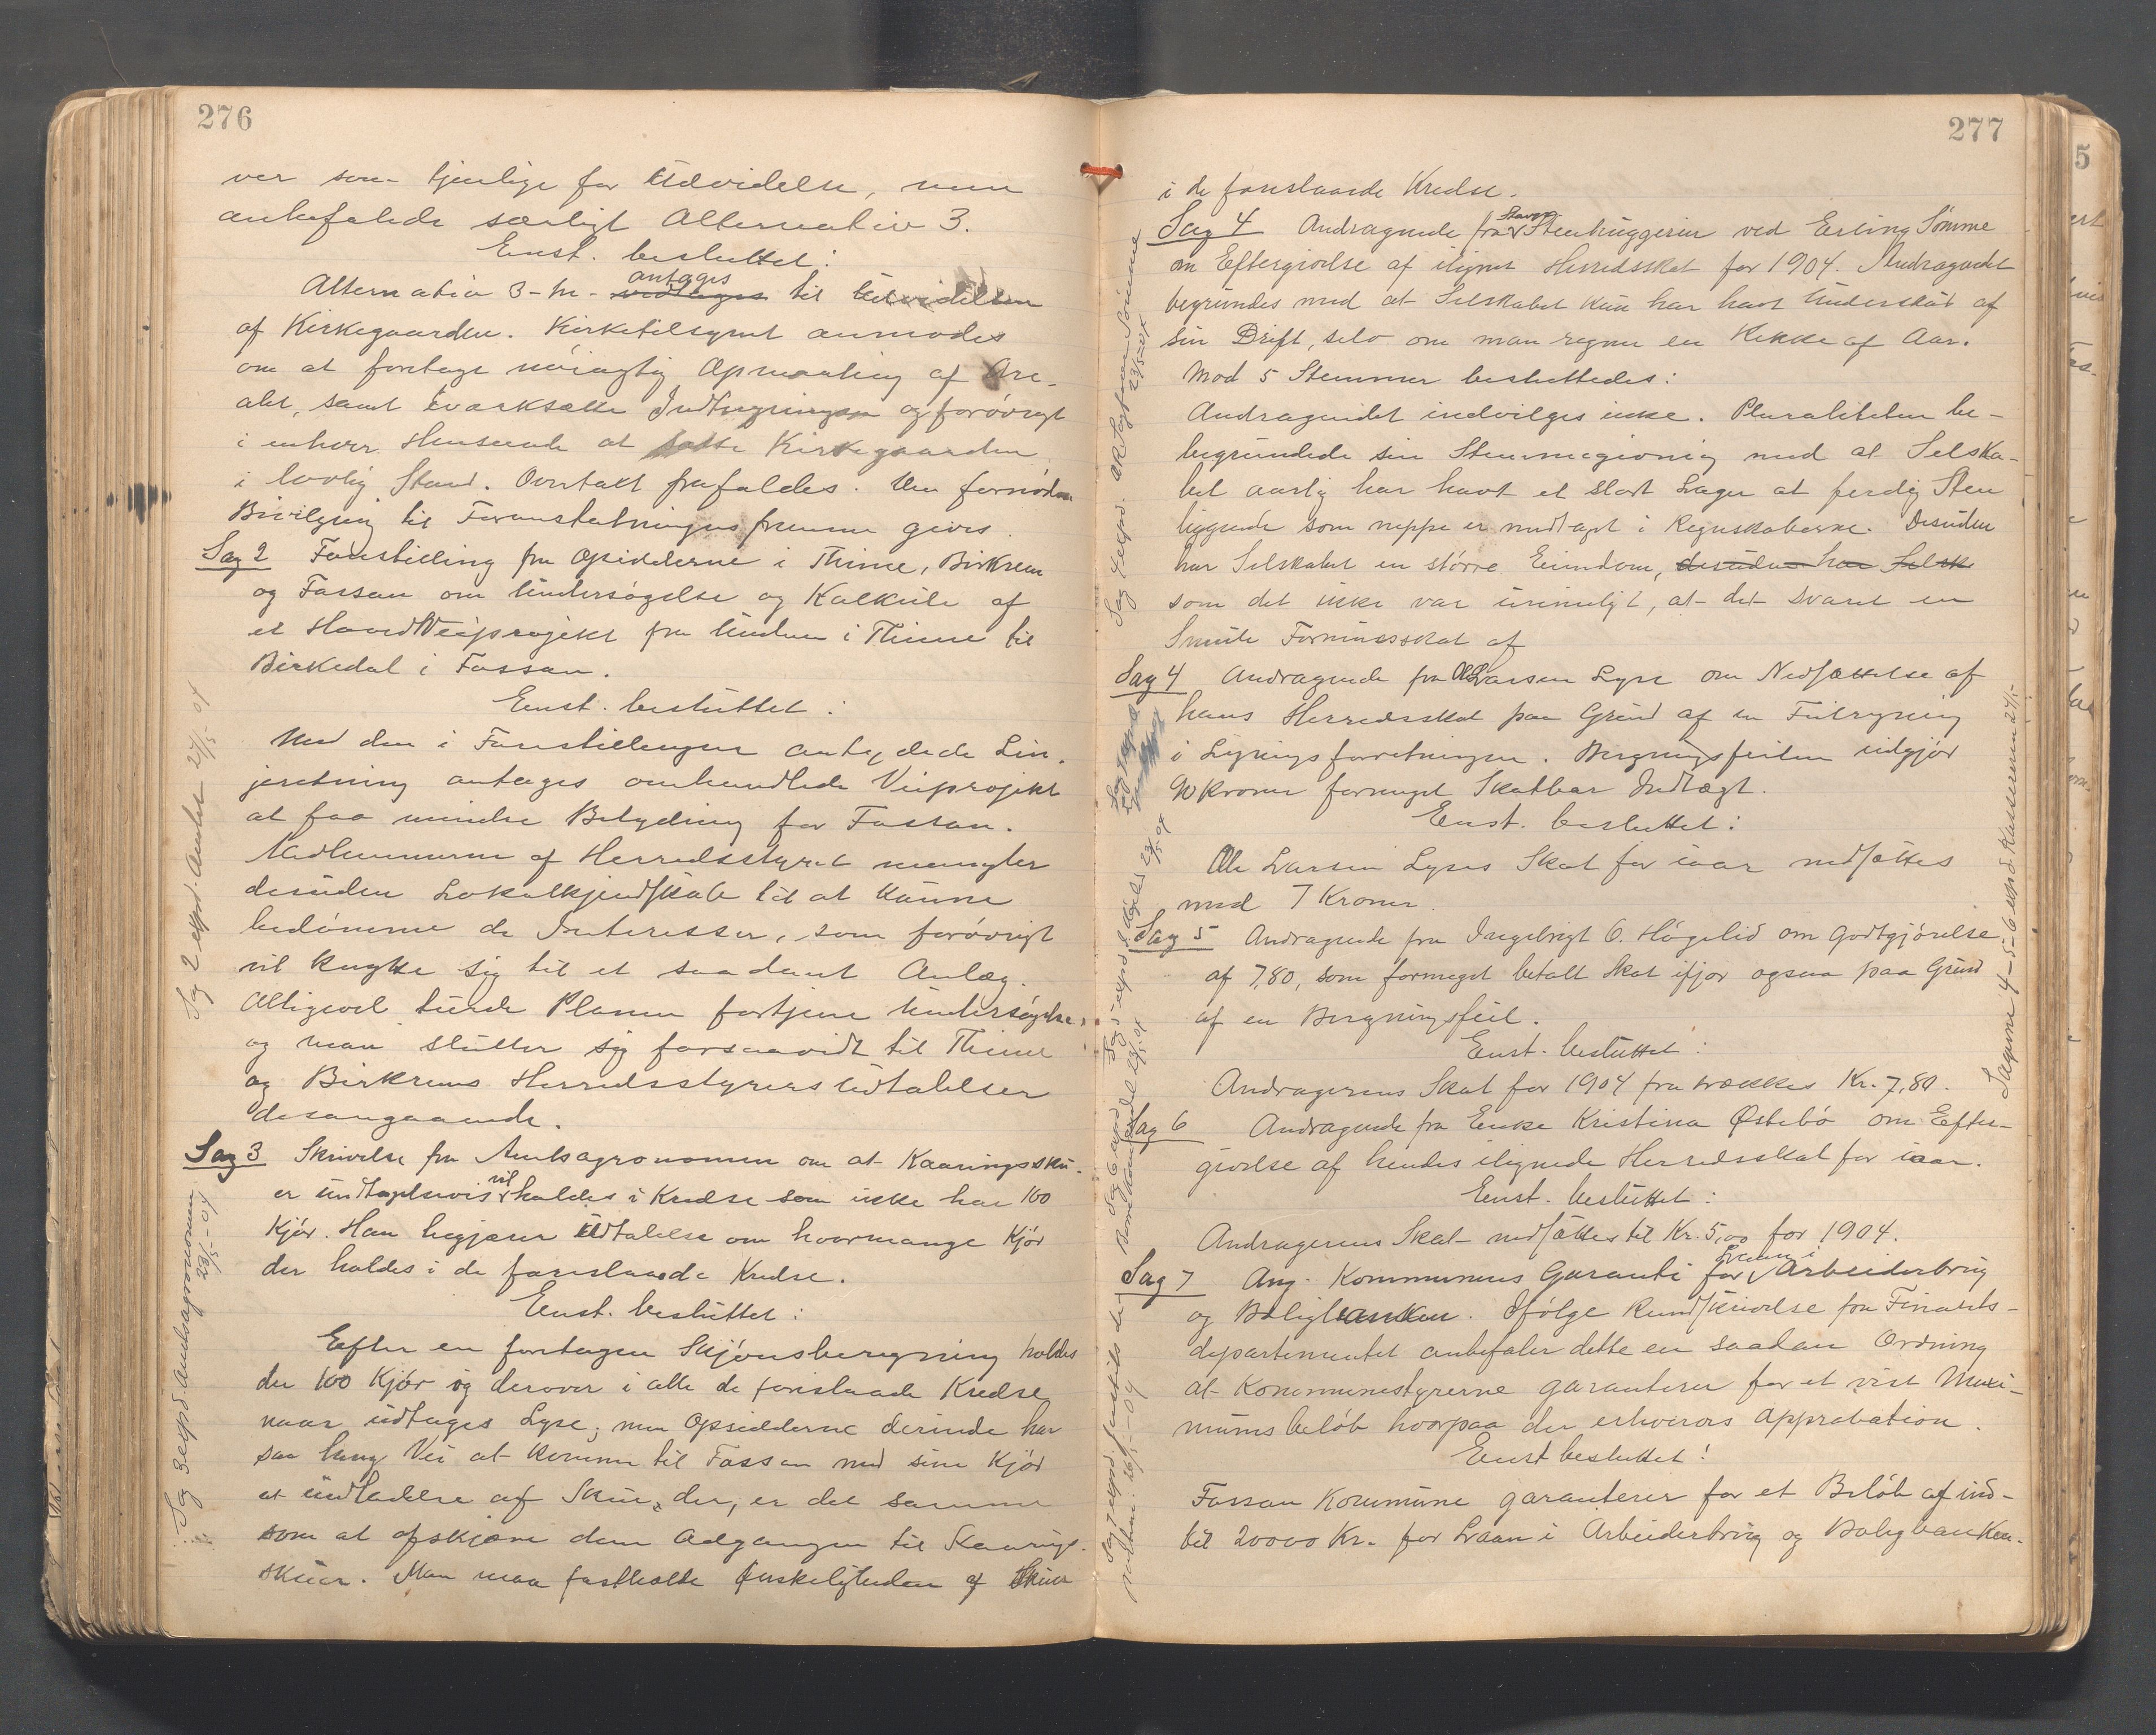 276
ver som tjenlige for Udvidelse, men
anbefalede særligt Alternativ 3.
Enst. besluttet:
Alternativ 3 - tre - vedtages antages til Udvidelsen
af Kirkegaarden. Kirketilsynet anmodes
om at foretage nöiagtig Opmaaling af Are-
alet, samt iværksætte Indhegningen og forövrigt
i enhver Henseende at sætte Kirkegaarden
i lovlig Stand. Overtakt frafaldes. Den fornödne
Bevilgning til Foranstaltningens fremme gives.
Sag 2 Forestilling fra Opsidderne i Thime, Birkrem
og Fossan om Undersögelse og Kalkule af
et Hovedveiprojekt fra Undem i Thime til
Birkedal i Fossan.
Enst. besluttet:
Med den i Forestillingen antydede Lin-
jeretning antages omhandlede Veiprojekt
at faa mindre Betydning for Fossan.
Medlemmerne af Herredsstyret mangler
desuden Lokalkjendskab til at kunne
bedömme de Interesser, som forövrigt
vil knytte sig til et saadant Anlæg.
Alligevel turde Planen fortjene Undersögelse,
og man slutter sig forsaavidt til Thime
og Birkrems Herredsstyrers Udtalelser
desangaaende.
Sag 3 Skrivelse fra Amtsagronomen om at Kaaringssku-
er undtagelsvis vil holdes i Kredse som ikke har 100
Kjör. Han begjærer Udtalelse om hvormange Kjör
der holdes i de foreslaaede Kredse.
Enst. besluttet:
Efter en foretagen Skjönsberegning holdes
der 100 Kjör og derover i alle de foreslaaede Kredse
naar undtages Lyse; men Opsidderne derinde har
saa lang Vei at komme til Fossan med sine Kjör
at undladelse af Skue der, er det samme
som at afskjære dem Adgangen til Kaarings-
skuer. Man maa fastholde Önskeligheden af Skuer
Sag 2 expd. Amtet 27/5-04
Sag 3 expd. Amtsagronomen 28/5-04
277
i de foreslaaede Kredse.
Sag 4 Andragende fra Stavgr. Stenhuggerier ved Erling Sömme
om Eftergivelse af ilignet Herredsskat for 1904. Andragendet
begrundes med at Selskabet kun har havt Underskud af
sin Drift, selv om man regner en Rekke af Aar.
Mod 5 Stemmer besluttedes:
Andragendet indvilges ikke. Pluraliteten be-
begrundede sin Stemmegivning med at Selska-
bet aarlig har havt et stort Lager at ferdig Sten
liggende som neppe er medtaget i Regnskaberne. Desuden
har Selskabet en större Eiendom, desuden har Selsk
som det ikke var urimeligt, at det svaret en
Smule Formuesskat af
Sag 4 Andragende fra O Larsen Lyse om Nedsættelse af
hans Herredsskat paa Grund af en Feilregning
i Ligningsforretningen. Beregningsfeilen udgjör
90 Kroner formeget Skatbar Indtægt.
Enst. besluttet:
Ole Larsen Lyses Skat for iaar nedsættes
med 7 Kroner.
Sag 5 Andragende fra Ingebrigt O. Högelid om Godtgjörelse
af 7,80, som formeget betalt Skat ifjor ogsaa paa Grund
af en Beregningsfeil.
Enst. besluttet:
Andragerens Skat for 1904 fratrækkes Kr. 7,80.
Sag 6 Andragende fra Enke Kristina Østebö om Efter-
givelse af hendes ilignede Herredsskat for iaar.
Enst. besluttet:
Andragerens Skat nedsættes til Kr. 5,00 for 1904.
Sag 7 Ang. Kommunens Garanti for Laan i Arbeiderbrug
og Boligbanken. Ifölge Rundskrivelse fra Finants-
departementet anbefaler dette en saadan Ordning
at Kommunestyrerne garanterer for et vist Maxi-
mumsbelöb hvorpaa der erhverves Approbation.
Enst besluttet:
Fossan Kommune garanterer for et Belöb af ind-
til 20000 Kr. for Laan i Arbeiderbrug og Boligbanken.
Sag 4 expd. Erling Sömme 28/5-04
Sagerne 4-5-6 expd. Kassereren 27/5-
5